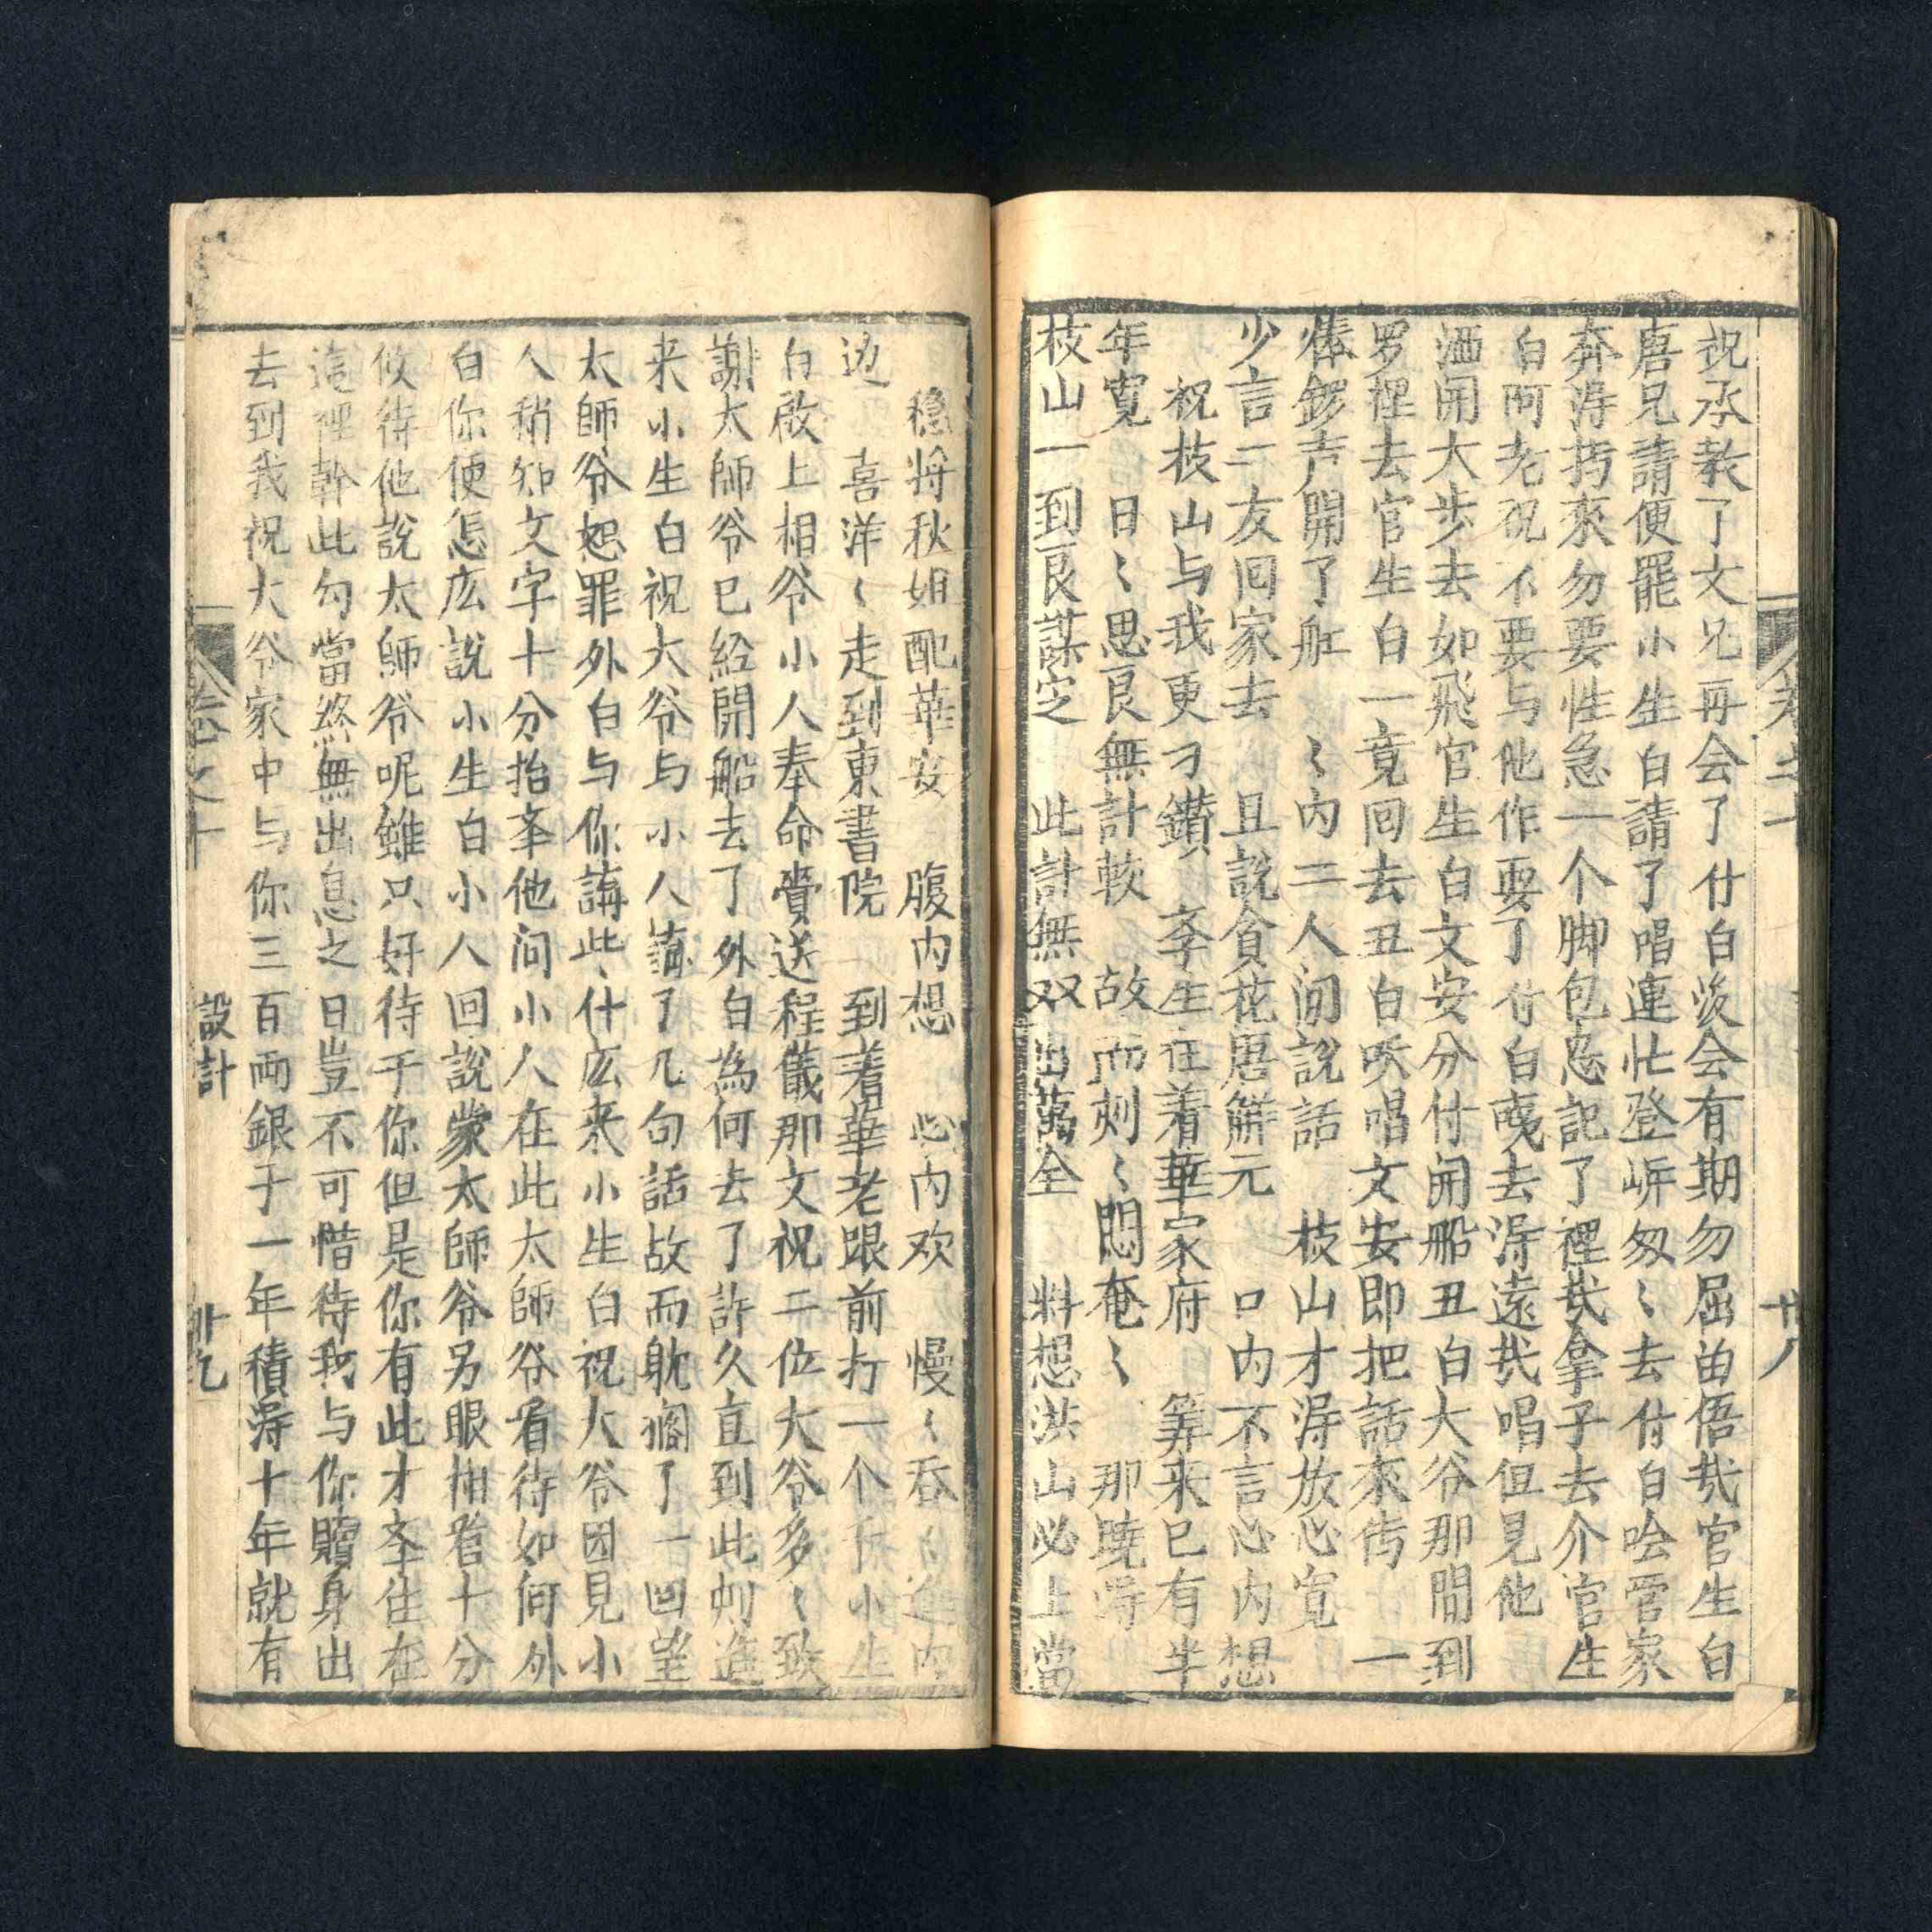 祝承教了文兄再会了付白後会有期勿屈由俉㢤官生白
唐兄請便罷小生白請了唱連忙登岍匆〻去付白哙官家
奔淂挊來勿要性急一个脚包忘記了裡㢤拿子去介官生
白阿老祝不要与他作耍了付白曵去淂遠㢤唱但見他
洒開大步去如飛官生白文安分付開船丑白大爷那間到
罗裡去官生白一竟回去丑白㕭唱文安即把話來传 一
棒鑼声開了舡 〻内二人间說話 枝山才淂放心寬
少言二友回家去 且說貪花唐解元 口内不言心内想
祝枝山与我更刁鑽 李生在着華家府 筭来已有半
年寬 日〻思良無計較 故而刻〻悶奄〻 那曉淂
枝山一到良謀定 此計無双出萬全 料想洪山必上當
卷之十 廿八
穏將秋姐配華安 腹内想 心内欢 慢〻吞〻進内
边 喜洋〻走到東書院 到着華老跟前打一个千小生
白啟上相爷小人奉命賫送程儀那文祝二位大爷多〻致
謝太師爷已経開船去了外白為何去了許久直到此刎進
来小生白祝大爷与小人講了几句話故而躭擱了一囬望
太師爷恕罪外白与你講此什庅来小生白祝大爷因見小
人稍知文字十分抬峯他问小人在此太師爷看待如何外
白你便怎庅說小生白小人回說蒙太師爷另眼相看十分
优待他說太師爷呢雖只好待于你但是你有此才峯住在
這裡幹此勾當終無出息之日豈不可惜待我与你贖身出
去到我祝大爷家中与你三百両銀子一年積淂十年就有
卷之十 設計 廿九